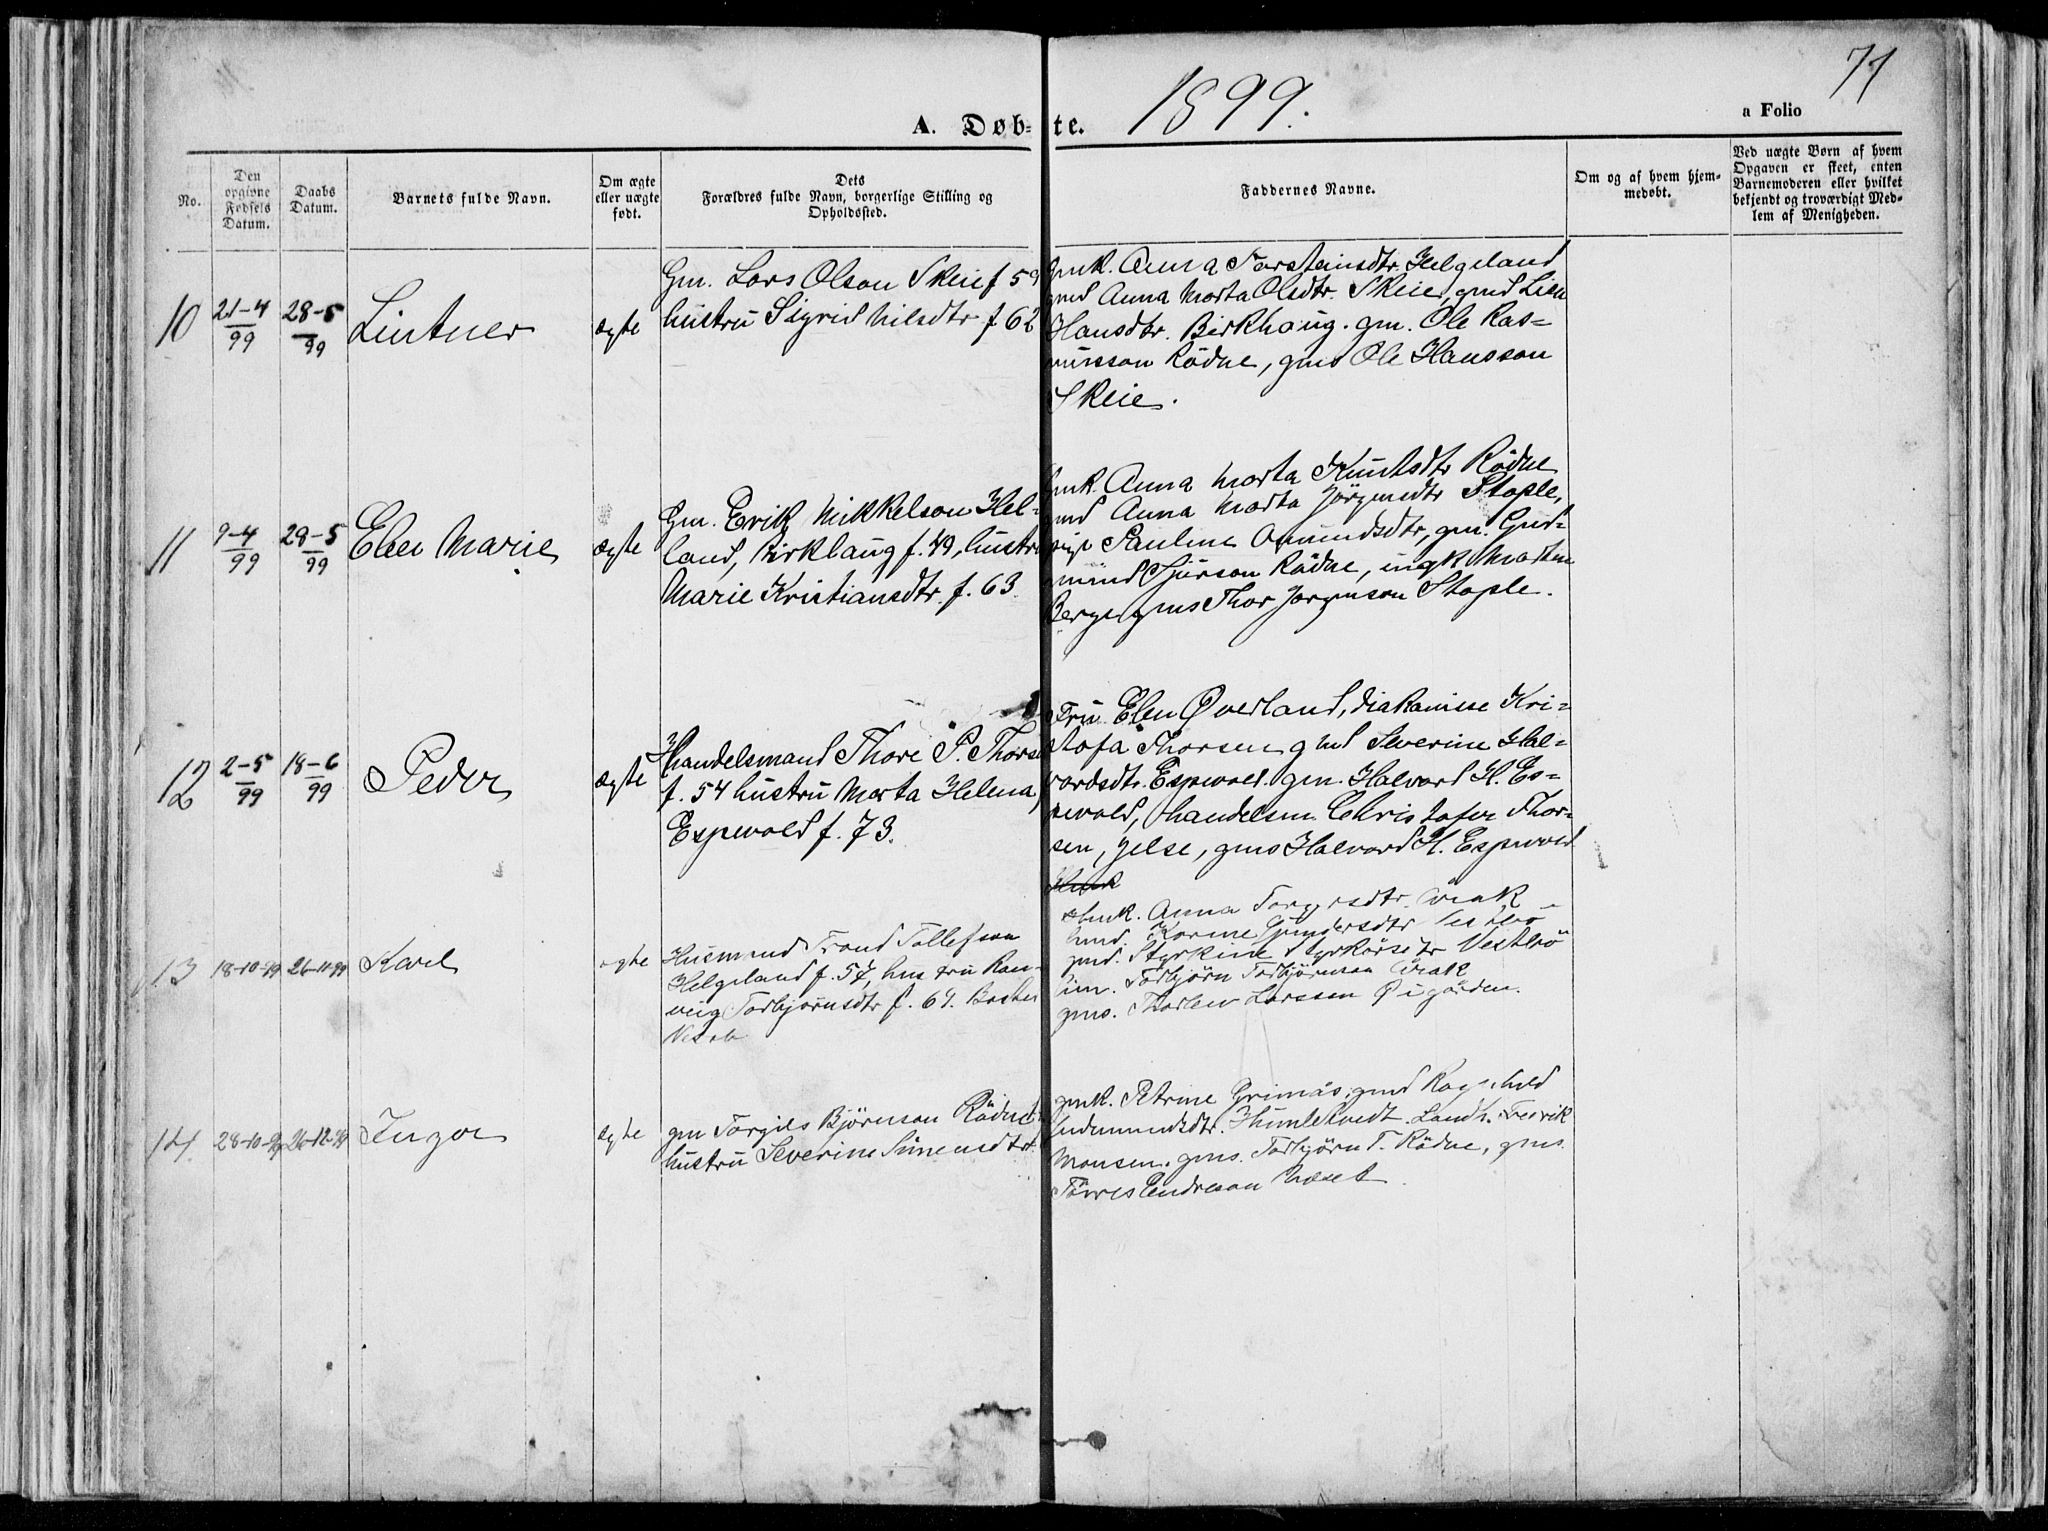 71
1899.
A. Døbte.
a Folio
No.
Den opgivne Fødsels Datum.
Daabs Datum.
Barnets fulde Navn.
Om ægte eller uægte født.
Dets Forældres fulde Navn, borgerlige Stilling og Opholdssted.
Faddernes Navne.
Om og af hvem hjemmedøbt.
Ved uægte Børn af hvem Opgaven er skeet, enten Barnemoderen eller hvilket bekjendt og troværdigt Medlem af Menigheden.
10
21-4/99
28-5/99
Lintner
ægte
Gm. Lars Olson Skeie f 59
hustru Sigrid Nilsdtr f 62
gmk. Anna Torsteinsdtr. Helgeland
gmd Anna Marta Olsdtr. Skeie, gmd Lisa
Hansdtr. Birkhaug. gm. Ole Ras-
musson Rödne, gms Ole Hansson
Skeie.
11
9-4/99
28-5/99
Elen Marie
ægte
Gm. Erik Mikkelson Hel-
land, Birkhaug f. 49, hustru
Marie Kristiansdtr. f. 63.
Gmk. Anna Marta Knutsdtr Rödne
gmd Anna Marta Jörgensdtr Stople,
pige Pauline Omundsdtr, gm. Gud-
mund Sjurson Rödne, ungk Marten
Berge gms Thor Jørgenson Stople.
12
2-5/99
18-6/99
Peder
ægte
Handelsmand Thore P. Thorsen
f. 54 hustru Marta Helena
Espevold f. 73.
Fru Elen Øverland, diakonisse Kri-
stofa Thorsen gmd Severine Hal-
vardsdtr. Espevold. gm. Halvard H. Es-
pevold, handelsm. Christofer Thor-
sen, Jelse, gms Halvard H. Espevold
13
18-10-99
26-11-99
Karl
ægte
Husmand Trond Tollefson
Helgeland f. 57, hustru Ran-
veig Torbjørnsdtr f. 69.
Hmk. Anna Torgersdtr. Vrak
hmd. Karine Gundersdtr Vestbö
gmd. Styrkine Styrkörsdtr Vestbö
hm. Torbjörn Torbjörnson Vrak
gms. Thorlew Larssen Øigården.
14.
28-10-99
26-12-99
Inger
ægte
gm Torgils Björnson Rödne
hustru Severine Simensdtr.
gmk. Petrine Grimås, gmd Ragnhild
Gudmundsdtr. Humlekvedt. Landh. Fredrik
Monsen. gms. Torbjörn T. Rödne, gms.
Tørres Endreson Næset.